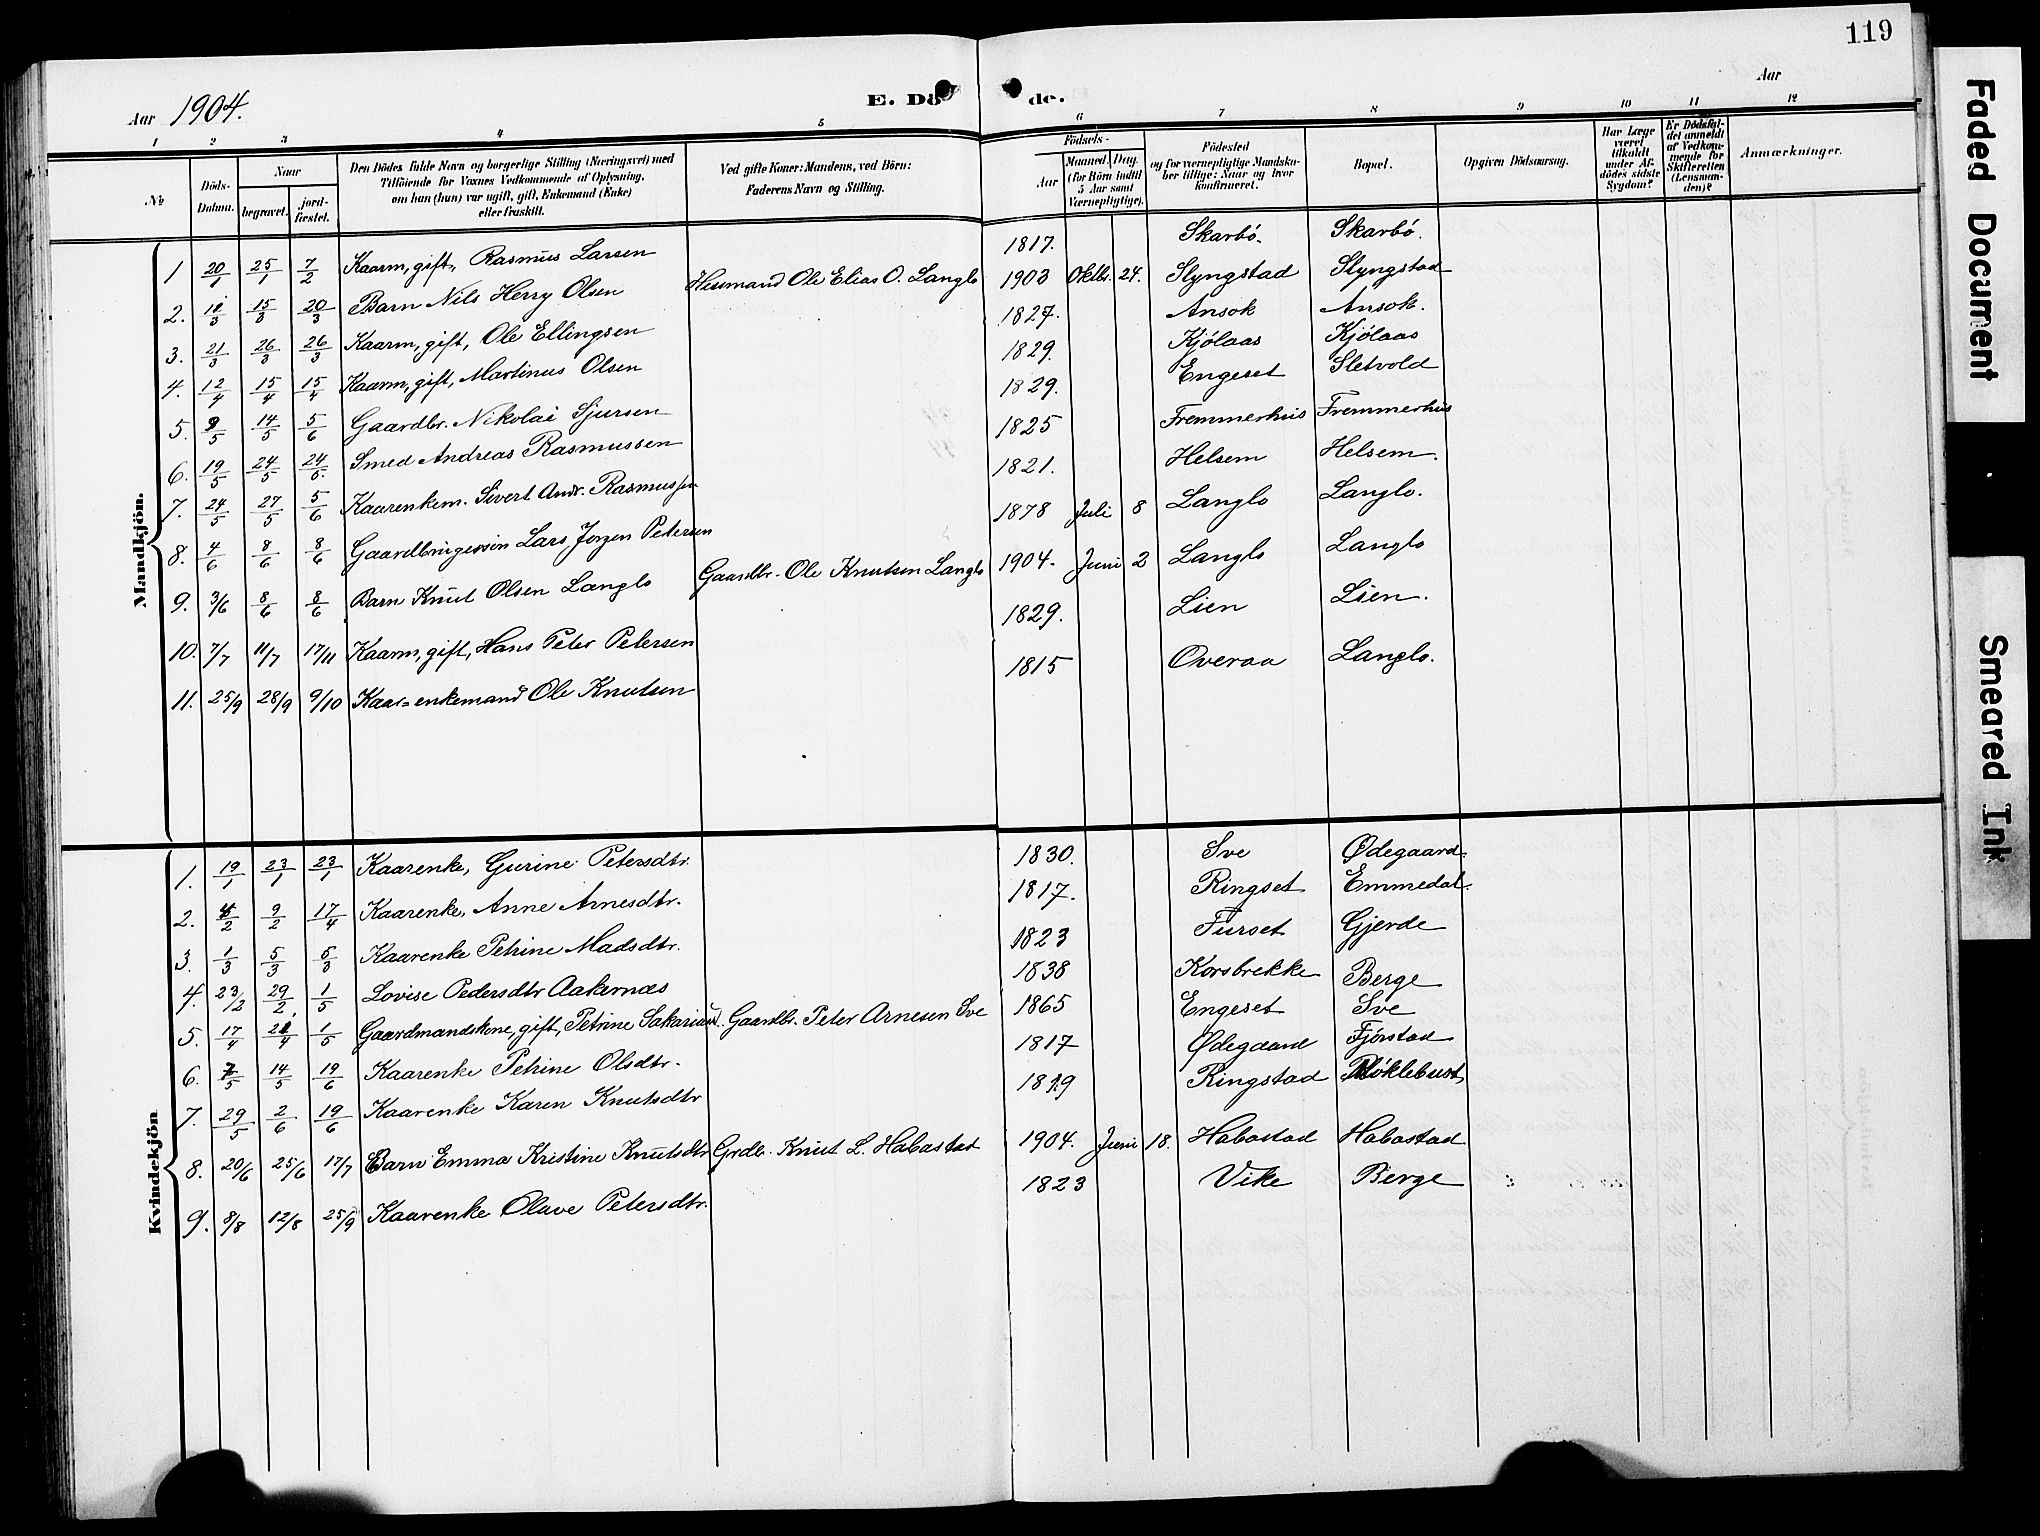 119
Aar 1904.
E. Dö de.
Aar
1 2 3 4 5 6 7 8 9 10 11 12
№
Döds-Datum.
Naar
begravet.
jord-fæstet.
Den Dödes fulde Navn og borgerlige Stilling (Næringsvei) med Tilföiende for Voxnes Vedkommende af Oplysning, om han (hun) var ugift, gift, Enkemand (Enke) eller fraskilt.
Ved gifte Koner: Mandens, ved Börn: Faderens Navn og Stilling.
Födsels-
Aar
Maaned. Dag.
(for Börn indtil 5 Aar samt Værnepligtige).
Födested og for værnepligtige Mandskaber tillige: Naar og hvor konfirmeret.
Bopæl.
Opgiven Dödsaarsag.
Har Læge været tilkaldt under Afdödes sidste Sygdom?
Er Dödsfaldet anmeldt af Vedkommende for Skifteretten (Lensmanden)?
Anmærkninger.
Mandkjön.
1 20/1 25/1 7/2 Kaarm, gift, Rasmus Larsen 1817. Skarbö. Skarbö.
2. 11/3 15/3 20/3 Barn Nils Herry Olsen Husmand Ole Elias O. Langlo 1903 Oktbr. 24. Slyngstad Slyngstad
3. 21/3 26/3 26/3 Kaarm, gift, Ole Ellingsen 1827. Ansok Ansok.
4. 12/4 15/4 15/4 Kaarm, gift, Martinus Olsen 1829. Kjölaas Kjölaas
5. 9/5 14/5 5/6 Gaardbr. Nikolai Sjursen 1829. Engeset Sletvold
6. 19/5 24/5 24/5. Smed Andreas Rasmussen 1825 Fremmerhus Fremmerhus
7. 24/5 27/5 5/6 Kaarenkem. Sivert Andr. Rasmussen 1821. Helsem Helsem.
8. 4/6 8/6 8/6 Gaardbrugersön Lars Jörgen Petersen 1878 Juli 8 Langlo Langlo.
9. 3/6 8/6 8/6 Barn Knut Olsen Langlo Gaardbr. Ole Knutsen Langlo 1904. Juni 2 Langlo Langlo
10. 7/7 11/7 17/11 Kaarm, gift, Hans Peter Petersen 1829. Lien Lien.
11. 25/9 28/9 9/10 Kaar-enkemand Ole Knutsen 1815 Overaa Langlo.
Kvindekjön
1. 19/1 23/1 23/1 Kaarenke, Gurine Petersdtr. 1830. Sve Ødegaard.
2. 4/2 9/2 17/4 Kaarenke, Anne Arnesdtr. 1817. Ringset Emmedal.
3. 1/3 5/3 5/3 Kaarenke Petrine Madsdtr. 1823 Furset Gjerde
4. 23/2 29/2 1/5 Lovise Pedersdtr Aakernæs 1838 Korsbrekke Berge
5. 17/4 21/4 1/5 Gaardmandskone, gift, Petrine Sakariasd. Gaardbr. Peter Arnesen Sve 1865 Engeset Sve
6. 7/5 14/5 19/6 Kaarenke Petrine Olsdtr. 1817 Ødegaard Fjörstad
7. 29/5 2/6 19/6 Kaarenke Karen Knutsdtr 1819 Ringstad Möklebust
8. 20/6 25/6 17/7 Barn Emma Kristine Knutsdtr Grdbr. Knut L. Habostad 1904. Juni 18. Habostad Habostad
9. 8/8 12/8 25/9 Kaarenke Olave Petersdtr. 1823 Vike Berge
Faded Document
Smeared Ink